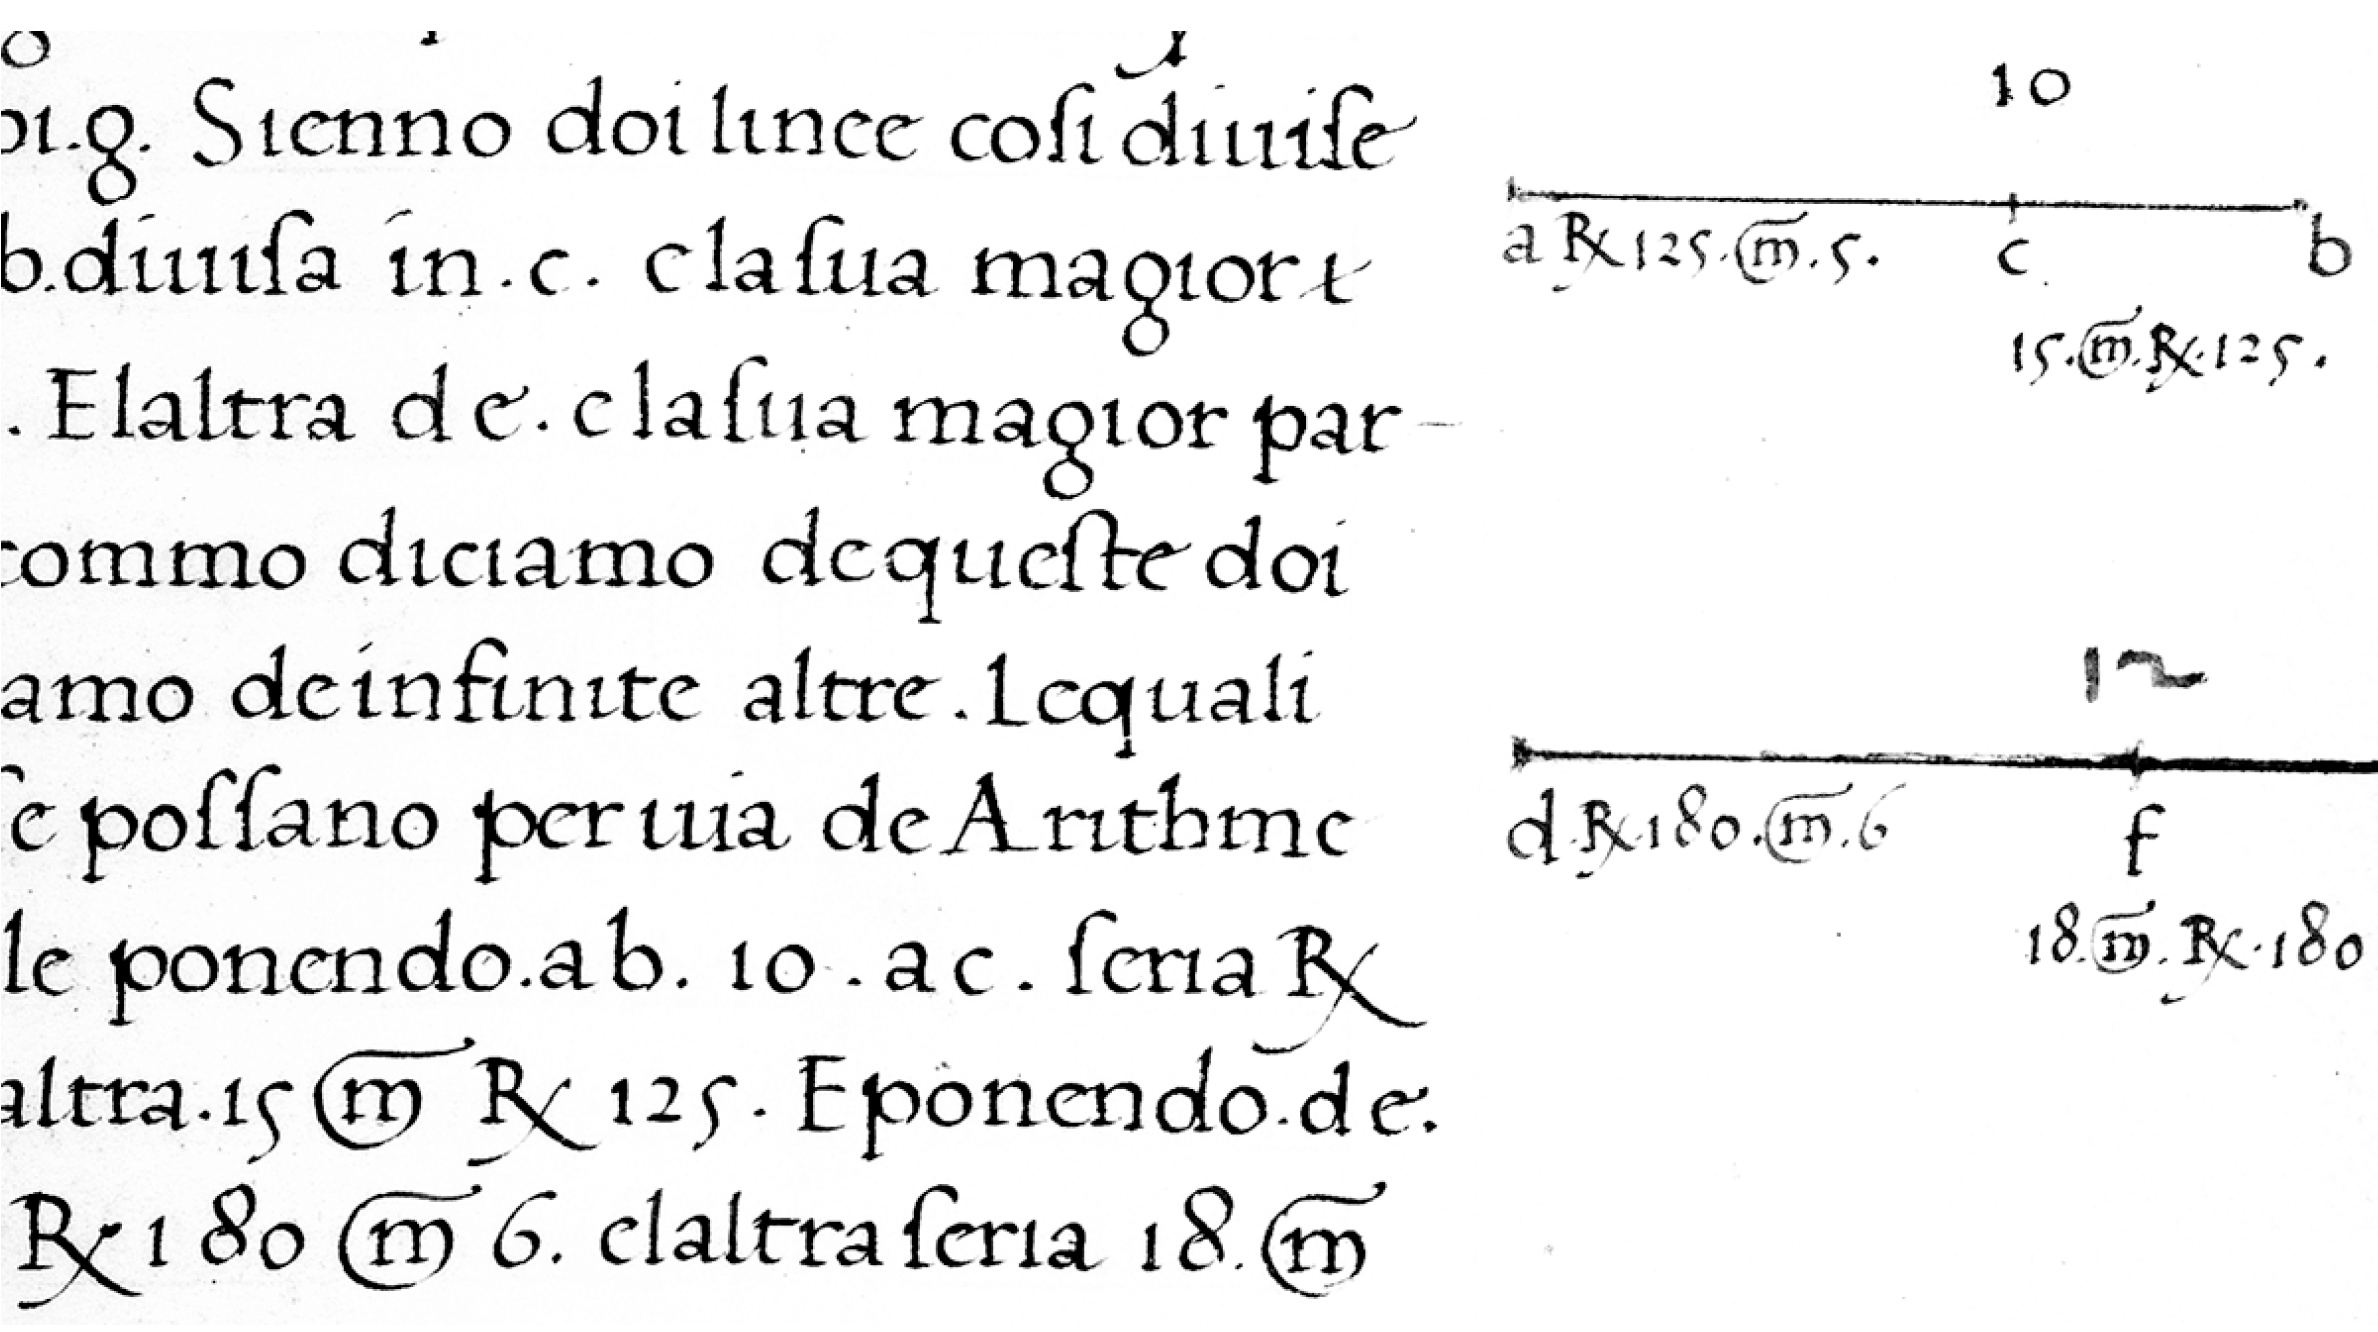 .g. Sienno doi linee cosi diuise
b.diuisa in.c. elasua magior
. Elaltra de. elasua magior par-
commo diciamo dequeste doi
amo deinfinite altre. Lequali
se possano per uia de Arithme
le ponendo.ab. 10. ac. seria ℞
altra.15 m̅ ℞ 125. Eponendo.de.
℞ 180 m̅ 6. elaltra seria 18. m̅
10
a ℞ 125. m̅. 5. c b
15. m̅. ℞. 125.
12
d. ℞. 180. m̅. 6 f
18. m̅. ℞. 180